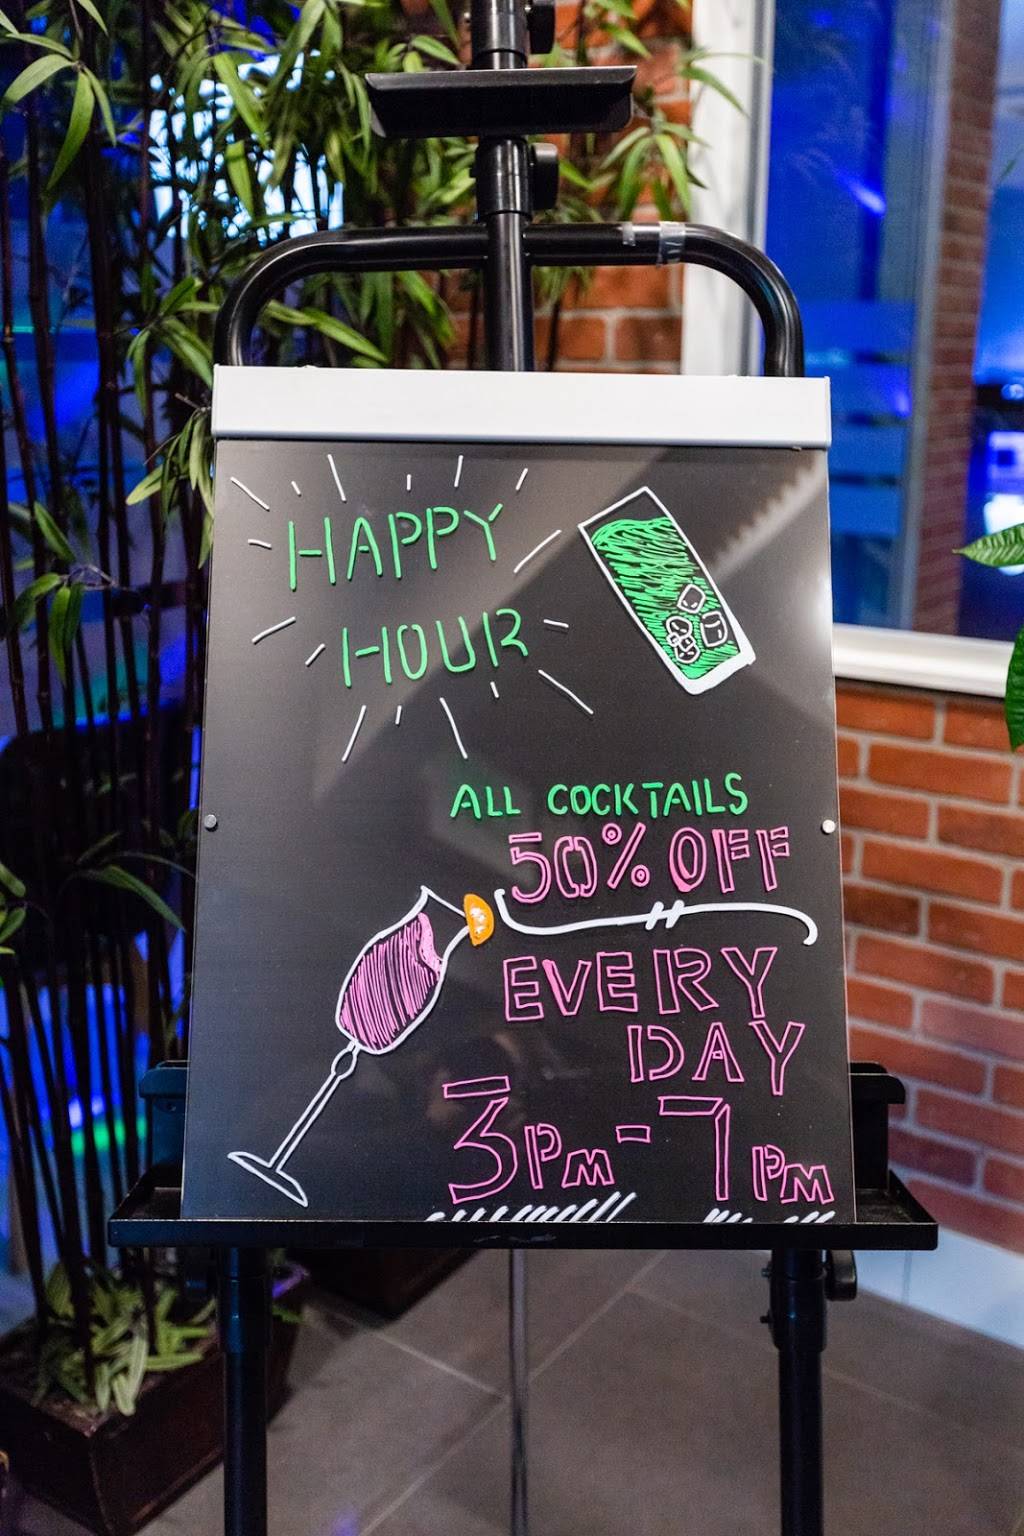 HAPPY
HOUR
ALL COCKTAILS
50% OFF
EVERY
DAY
3PM-7PM